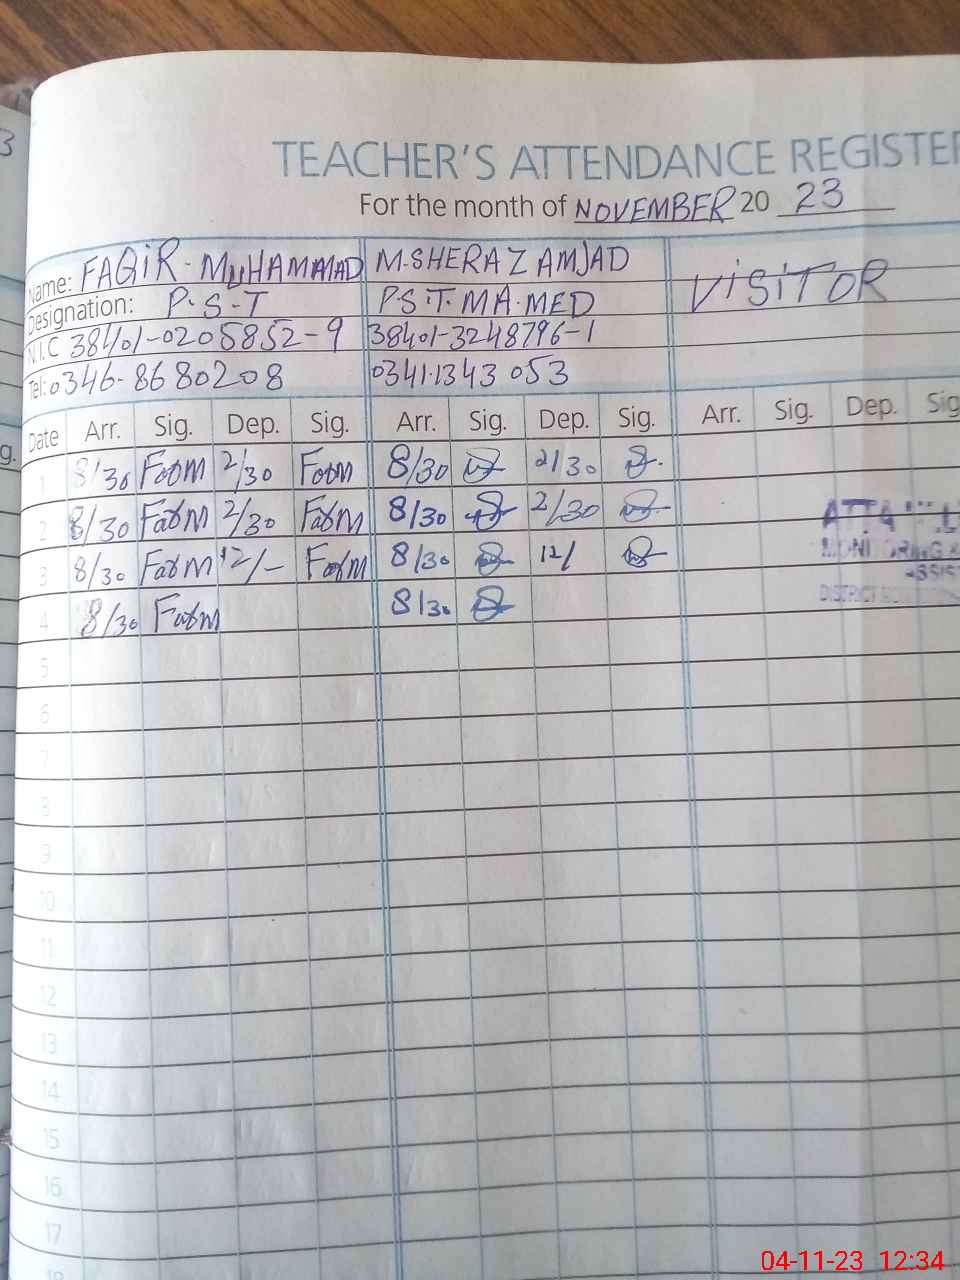 3
TEACHER'S ATTENDANCE REGISTER
For the month of NOVEMBER 20 23
Name: FAQIR. MUHAMMAD M.SHERAZ AMJAD VISITOR
Designation: P.S.T P.S.T. MA.MED
N.I.C 38401-0205852-9 38401-3248796-1
Tel: 0346-8680208 0341.1343 053
Date Arr. Sig. Dep. Sig. Arr. Sig. Dep. Sig. Arr. Sig. Dep. Sig
g.
1 8/30 2/30 8/30 2/30
2 8/30 2/30 8/30 2/30
3 8/30 12/- 8/30 12/
4 8/30 8/30
MONITORING
DISTRICT
5
6
7
8
9
10
11
12
13
14
15
16
17
18
04-11-23 12:34